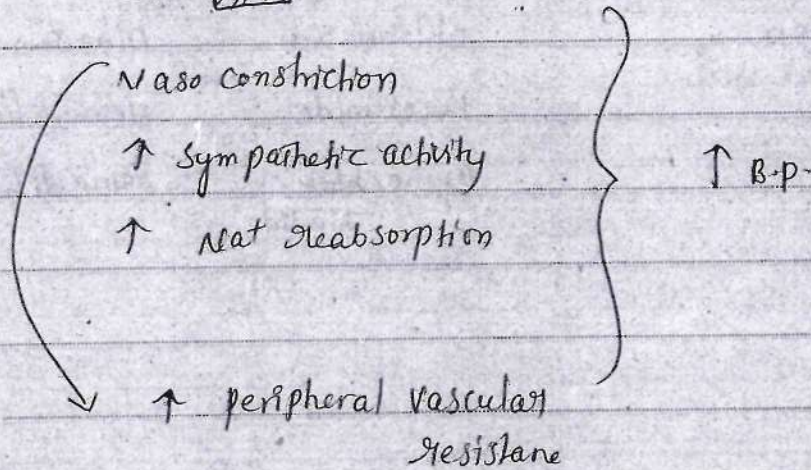 Vaso constriction
↑ sympathetic activity
↑ Na+ reabsorption
↑ B.P.
↑ peripheral vascular
resistane